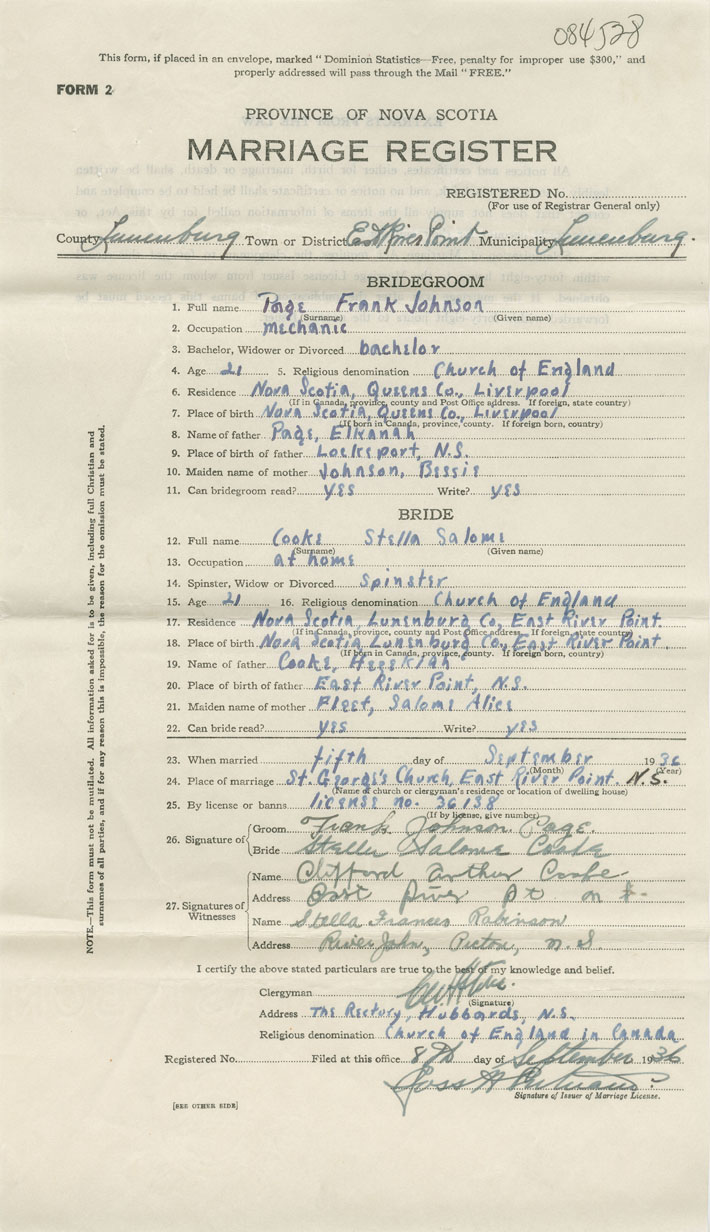 084528
This form, if placed in an envelope, marked "Dominion Statistics—Free, penalty for improper use $300," and
properly addressed will pass through the Mail "FREE."
FORM 2
PROVINCE OF NOVA SCOTIA
MARRIAGE REGISTER
REGISTERED No.
(For use of Registrar General only)
County Lunenburg Town or District East River Point Municipality Lunenburg.
BRIDEGROOM
1. Full name Page Frank Johnson
(Surname) (Given name)
2. Occupation mechanic
3. Bachelor, Widower or Divorced bachelor
4. Age 21 5. Religious denomination Church of England
6. Residence Nova Scotia, Queens Co., Liverpool
(If in Canada, province, county and Post Office address. If foreign, state country)
7. Place of birth Nova Scotia, Queens Co., Liverpool
(If born in Canada, province, county. If foreign born, country)
8. Name of father Page, Elkanah
9. Place of birth of father Lockeport, N.S.
10. Maiden name of mother Johnson, Bessie
11. Can bridegroom read? yes Write? yes
BRIDE
12. Full name Cooke Stella Salome
(Surname) (Given name)
13. Occupation at home
14. Spinster, Widow or Divorced spinster
15. Age 21 16. Religious denomination Church of England
17. Residence Nova Scotia, Lunenburg Co, East River Point.
(If in Canada, province, county and Post Office address. If foreign, state country)
18. Place of birth Nova Scotia Lunenburg Co., East River Point.
(If born in Canada, province, county. If foreign born, country)
19. Name of father Cooke, Hezekiah
20. Place of birth of father East River Point, N.S.
21. Maiden name of mother Fleet, Salome Alice
22. Can bride read? yes Write? yes
23. When married fifth day of September 1936
(Month) (Year)
24. Place of marriage St. George's Church, East River Point. N.S.
(Name of church or clergyman's residence or location of dwelling house)
25. By license or banns license no. 36138
(If by license, give number)
26. Signature of Groom Frank Johnson Page.
Bride Stella Salome Cooke
27. Signatures of Witnesses Name Clifford Arthur Cooke
Address East River Pt
Name Stella Frances Robinson
Address River John, Pictou, N.S.
I certify the above stated particulars are true to the best of my knowledge and belief.
Clergyman
(Signature)
Address The Rectory, Hubbards, N.S.
Religious denomination Church of England in Canada
Registered No. Filed at this office 8th day of September 1936
Signature of Issuer of Marriage License.
[SEE OTHER SIDE]
NOTE.—This form must not be mutilated. All information asked for is to be given, including full Christian and
surnames of all parties, and if for any reason this is impossible, the reason for the omission must be stated.